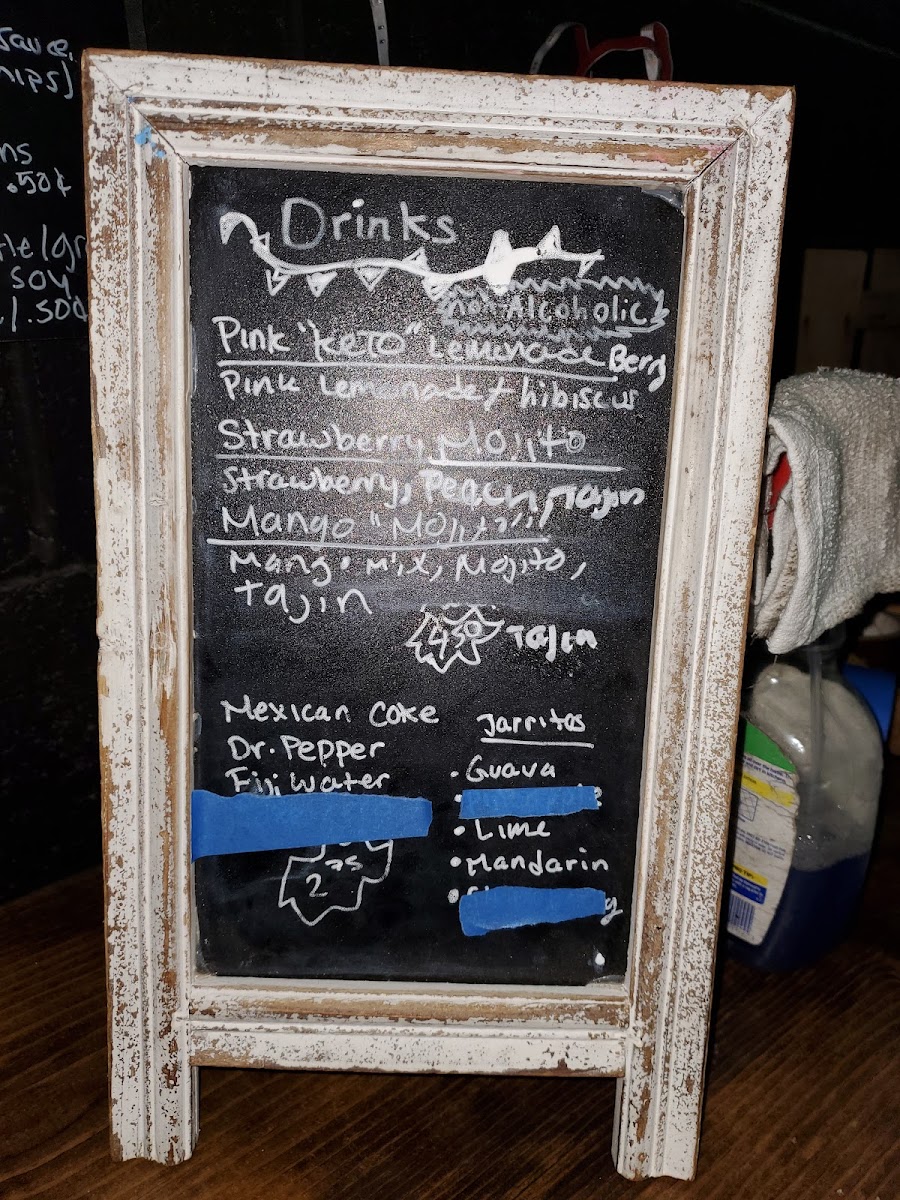 sauce
hips)
ns
.50¢
soy
1.50¢
Drinks
non Alcoholic
Pink "Keto" Lemonade Berry
Pink Lemonade / hibiscus
Strawberry Mojito
Strawberry, Peach, Tajin
Mango "Mojito"
Mango mix, Mojito,
Tajin
450 Tajin
Mexican Coke
Dr. Pepper
Fiji Water
275
Jarritos
• Guava
• Lime
• Mandarin